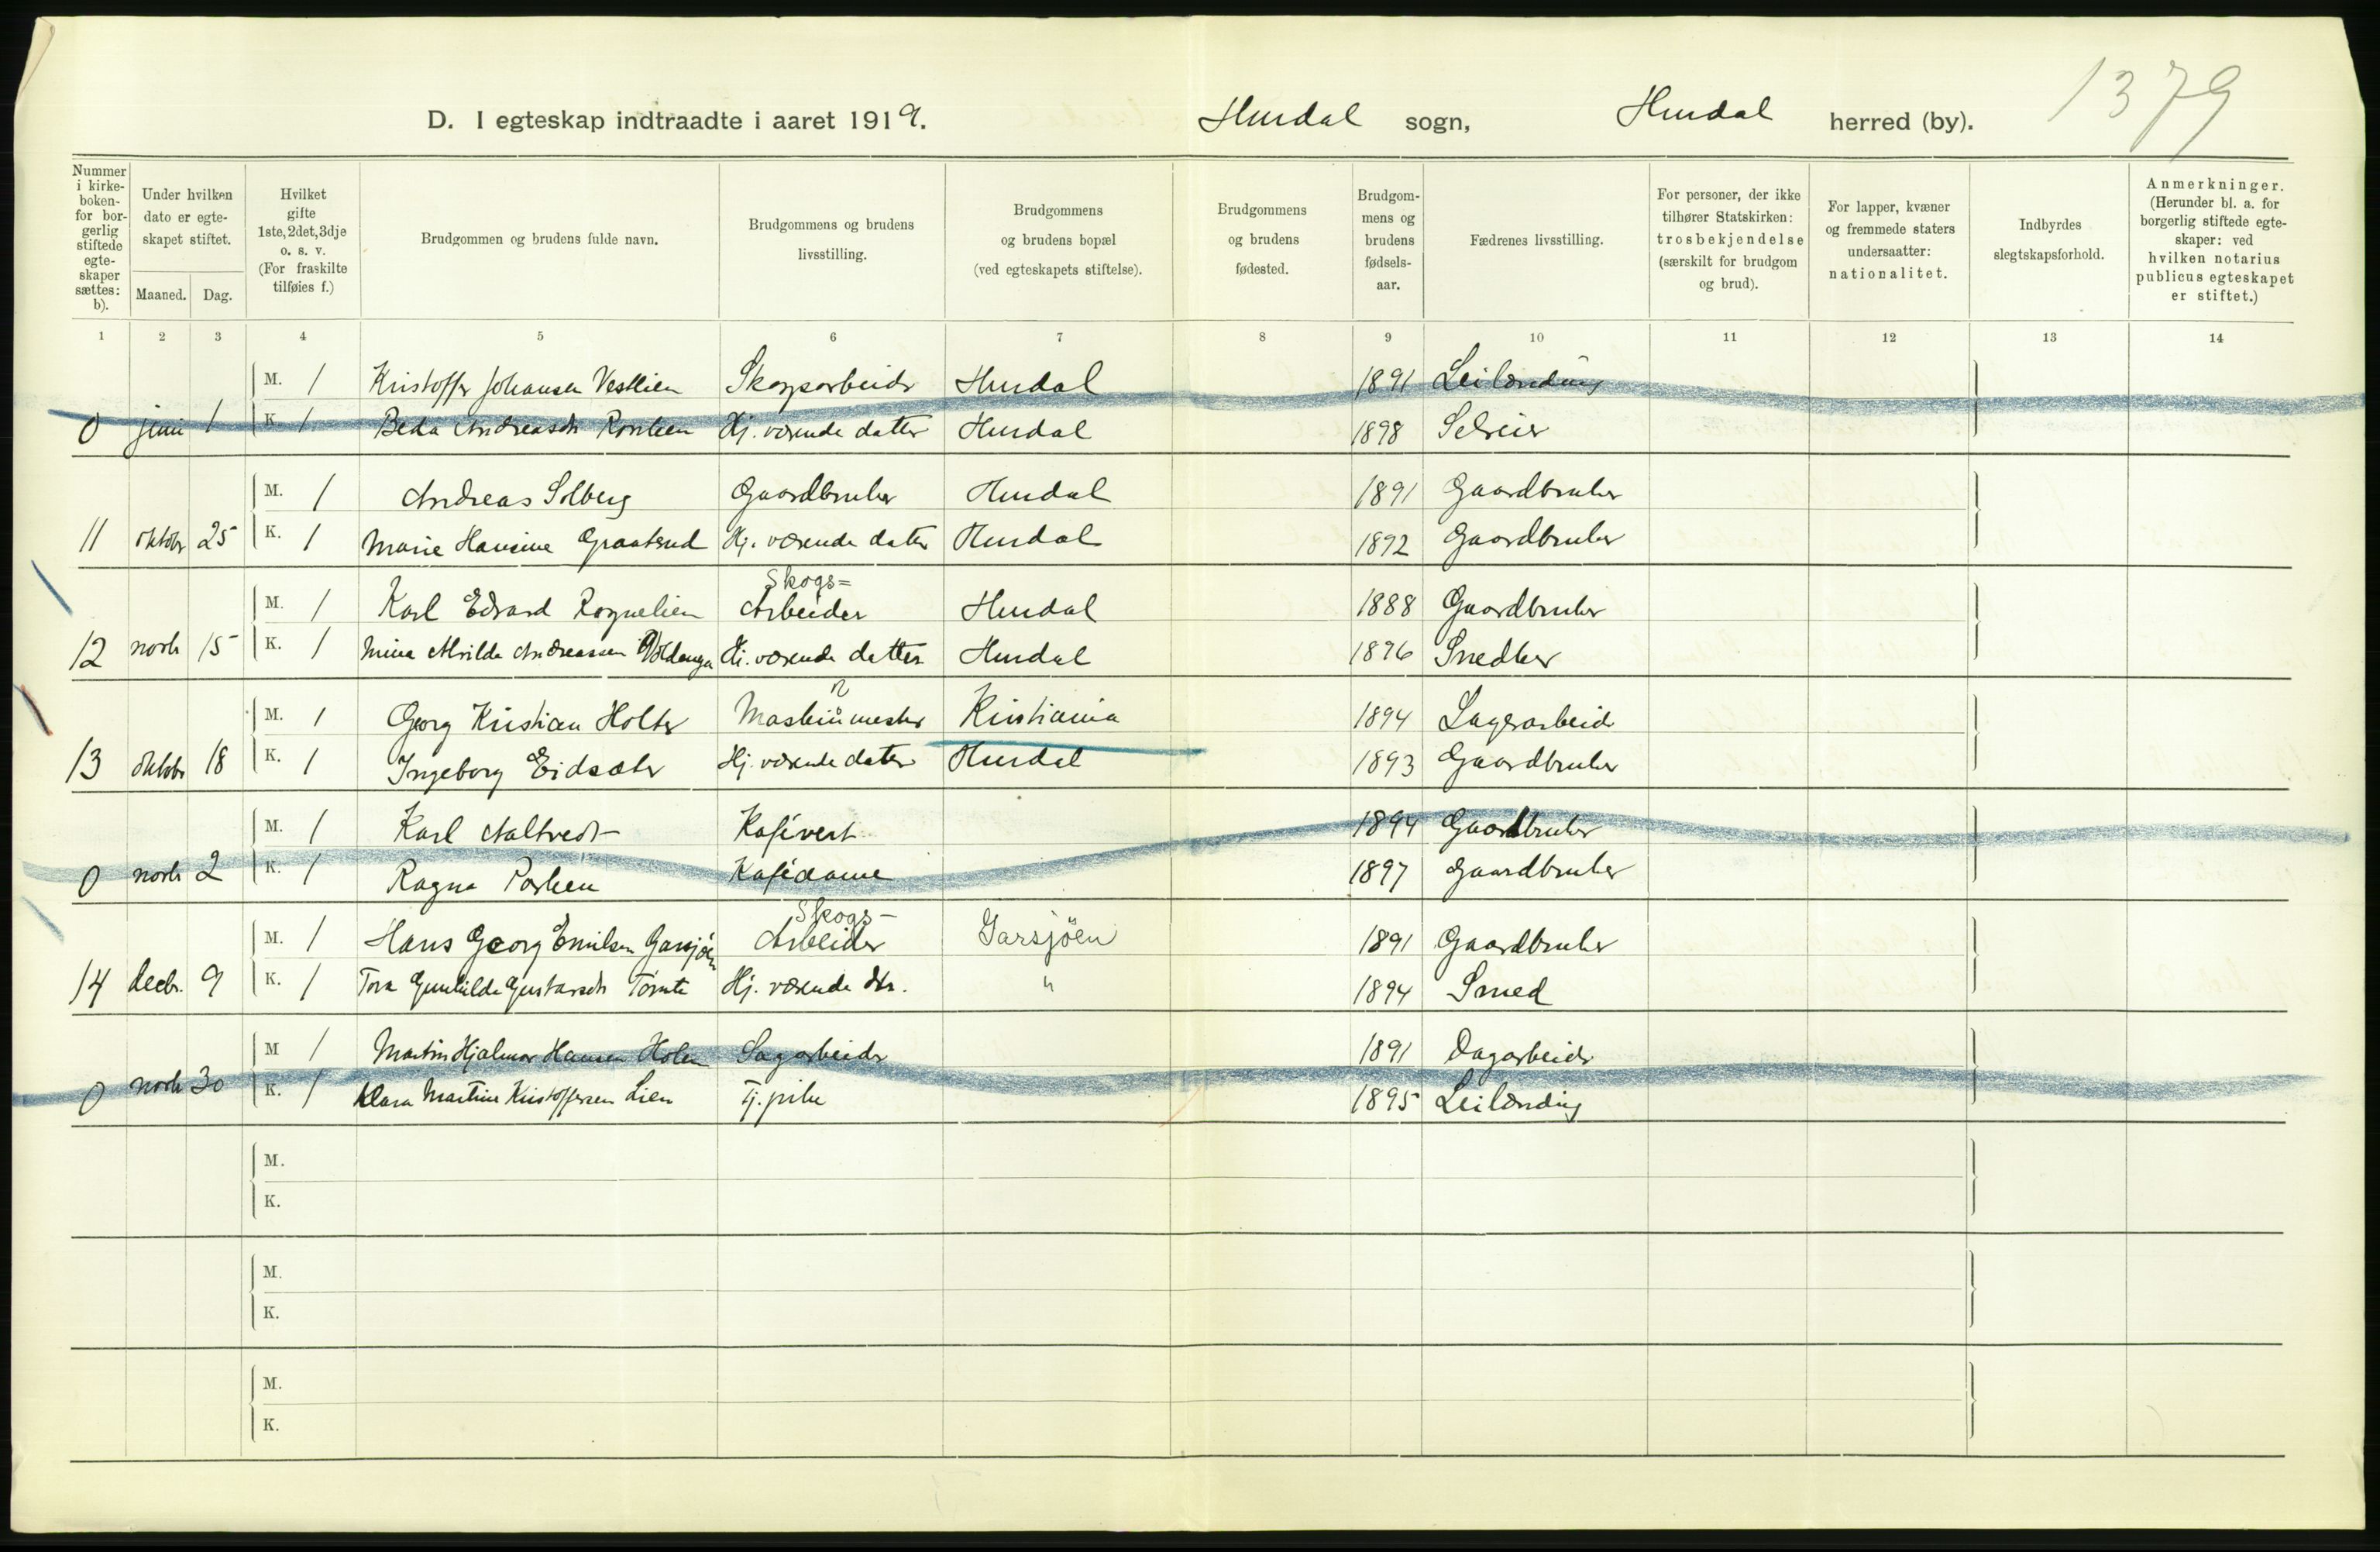 1379
D. I egteskap indtraadte i aaret 1919. Hurdal sogn, Hurdal herred (by).
Nummer i kirke- boken- for bor- gerlig stiftede egte- skaper sættes: b).
Under hvilken dato er egte- skapet stiftet.
Maaned. Dag.
Hvilket gifte 1ste, 2det, 3dje o. s. v. (For fraskilte tilføies f.)
Brudgommen og brudens fulde navn.
Brudgommens og brudens livsstilling.
Brudgommens og brudens bopæl (ved egteskapets stiftelse).
Brudgommens og brudens fødested.
Brudgom- mens og brudens fødsels- aar.
Fædrenes livsstilling.
For personer, der ikke tilhører Statskirken: trosbekjendelse (særskilt for brudgom og brud).
For lapper, kvæner og fremmede staters undersaatter: nationalitet.
Indbyrdes slegtskapsforhold.
Anmerkninger. (Herunder bl. a. for borgerlig stiftede egte- skaper: ved hvilken notarius publicus egteskapet er stiftet.)
1 2 3 4 5 6 7 8 9 10 11 12 13 14
M. 1 Kristoffer Johansen Vestlien Skogsarbeidr Hurdal 1891 Leilænding
0 juni 1 K. 1 Beda Andreasdtr Hj. værende datter Hurdal 1898 Selveier
M. 1 Andreas Solberg Gaardbruker Hurdal 1891 Gaardbruker
11 oktobr 25 K. 1 Marie Hansine Graatsrud Hj. værende datter Hurdal 1892 Gaardbruker
Skogs=
M. 1 Karl Edvard Rognelien Arbeider Hurdal 1888 Gaardbruker
12 novb 15 K. 1 Mina Alvilda Andreassen Voldenga Hj. værende datter Hurdal 1896 Snedker
n
M. 1 Georg Kristian Holter Maskinmester Kristiania 1894 Lagerarbeid
13 oktobr 18 K. 1 Ingeborg Eidsæter Hj. værende datter Hurdal 1893 Gaardbruker
M. 1 Karl Aaltvedt Kafévert 1894 Gaardbruker
0 novb 2 K. 1 Ragna Kafédame 1897 Gaardbruker
Skogs-
M. 1 Hans Georg Emilsen Garsjöen Arbeider Garsjöen 1891 Gaardbruker
14 decbr. 9 K. 1 Tora Gunhilda Gustavsdtr Tömte Hj. værende dtr. " 1894 Smed
M 1 Martin Hjalmar Hansen Holen Sagarbeidr 1891 Dagarbeidr
0 novb 30 K. 1 Klara Martine Kristoffersen Lien Tj. pike 1895 Leilænding
M.
K.
M.
K.
M.
K.